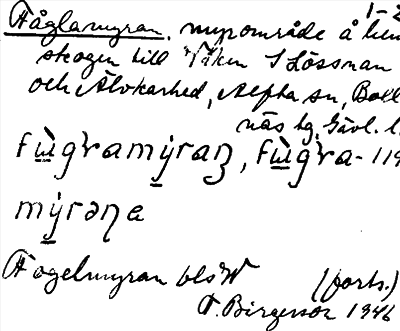 Fåglamyran, myrområde å hem 1-2
skogen till Växen S Lössnan
och Älvkarhed, Alfta sn, Boll
näs hg, Gävl. l.
fùgramýraŋ, fùgra- 119
mýrəŋa
Fogelmyran bls W (forts.)
T. Birgersson 1946